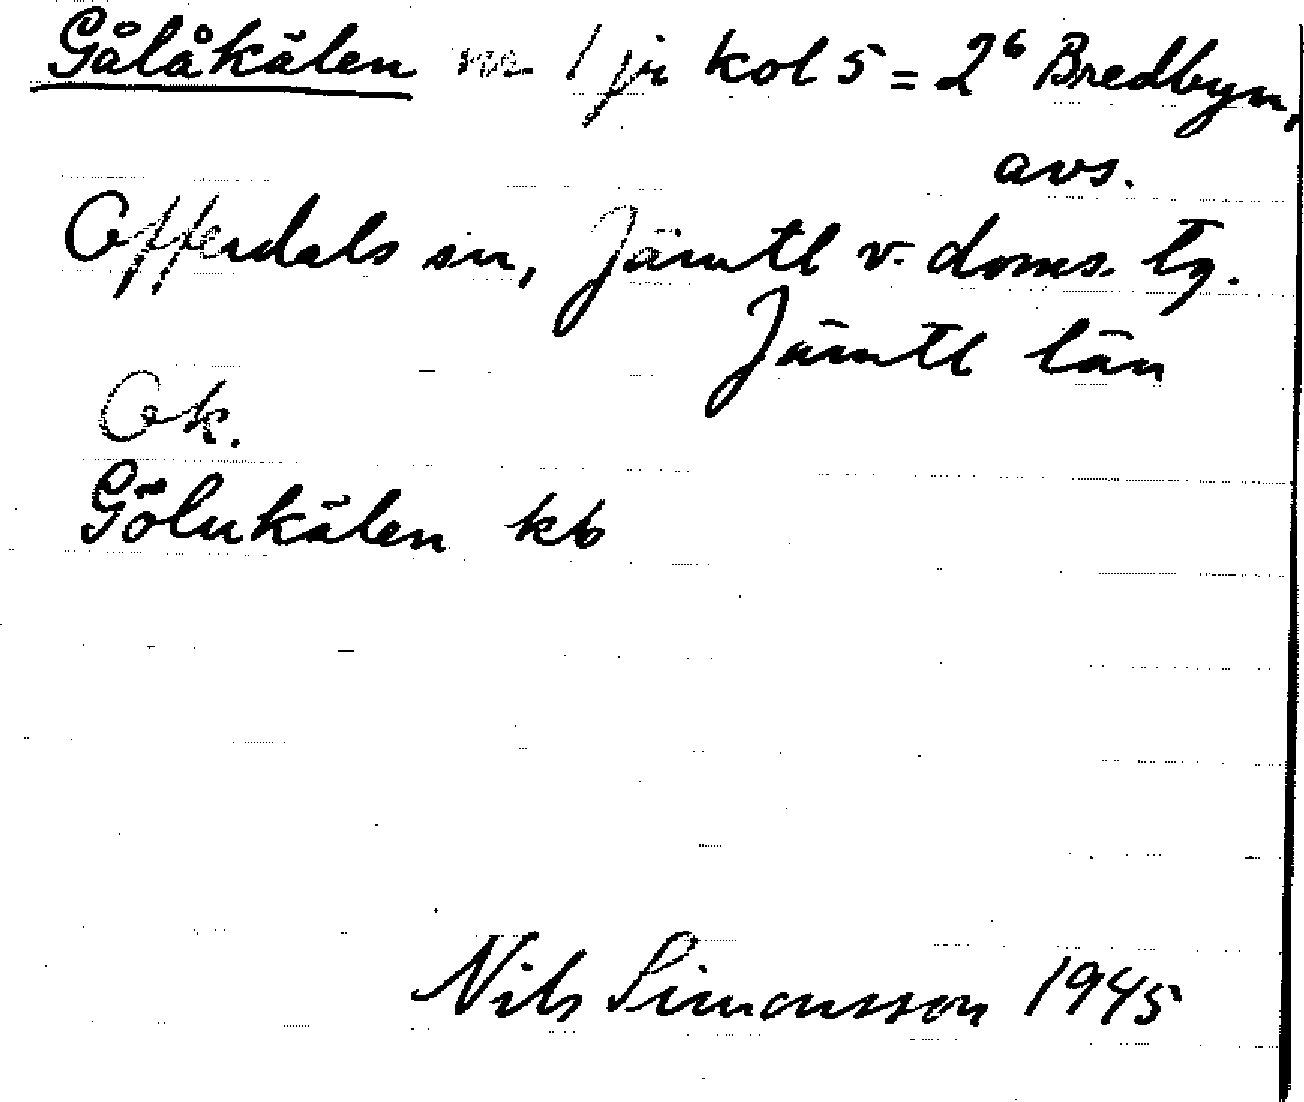 Gålåkälen nr 1 jr kol 5 = 2⁶ Bredbyn,
avs.
Offerdals sn, Jämtl v. doms. tg.
Jämtl län
Ok.
Gölukälen kb
Nils Simonsson 1945